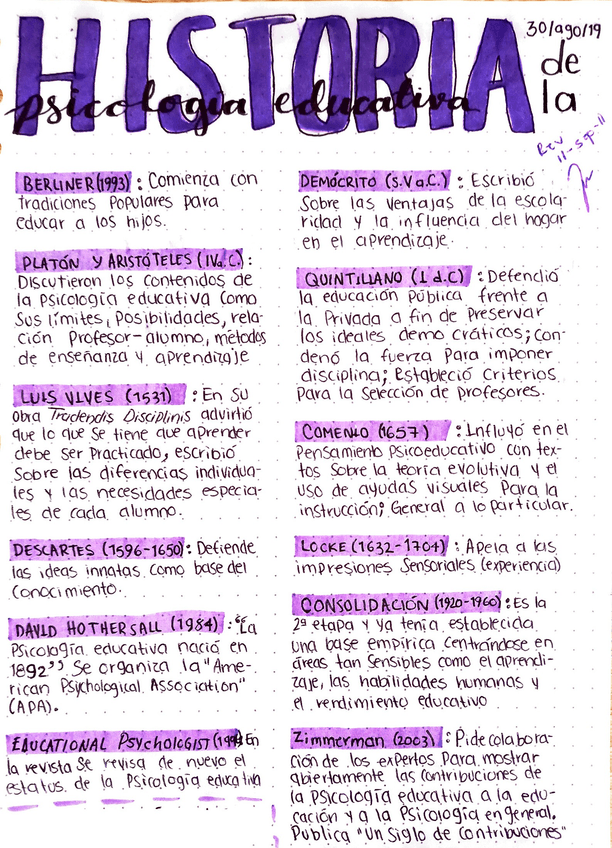 HISTORIA
de
la
psicología educativa
30/ago/19
Rev
11-sep-11
BERLINER (1993) : Comienza con
tradiciones populares para
educar a los hijos.
PLATÓN Y ARISTÓTELES (IV a.C) :
Discutieron los contenidos de
la psicología educativa como
sus límites, posibilidades, rela-
ción Profesor-alumno, métodos
de enseñanza y aprendizaje
LUIS VIVES (1531) : En su
obra Tradendis Disciplinis advirtió
que lo que se tiene que aprender
debe ser practicado, escribió
sobre las diferencias individua-
les y las necesidades especia-
les de cada alumno.
DESCARTES (1596-1650) : Defiende
las ideas innatas como base del
conocimiento.
DAVID HOTHERSALL (1984) : "La
Psicología educativa nació en
1892" se organiza la "Ame-
rican Psychological Association"
(APA).
EDUCATIONAL PSYCHOLOGIST En
la revista se revisa de nuevo el
estatus de la Psicología educativa
DEMÓCRITO (s.V a.C.) : Escribió
sobre las ventajas de la escola-
ridad y la influencia del hogar
en el aprendizaje.
QUINTILIANO (I d.C) : Defendió
la educación pública frente a
la privada a fin de preservar
los ideales demo cráticos; con-
denó la fuerza para imponer
disciplina; Estableció criterios
para la selección de profesores.
COMENIO (1657) : Influyó en el
Pensamiento psicoeducativo con tex-
tos sobre la teoría evolutiva y el
uso de ayudas visuales para la
instrucción; General a lo particular.
LOCKE (1632-1704) : Apela a las
impresiones sensoriales (experiencia)
CONSOLIDACIÓN (1920-1960) : Es la
2ª etapa y ya tenía establecida
una base empírica centrándose en
áreas tan sensibles como el aprendi-
zaje, las habilidades humanas y
el rendimiento educativo
Zimmerman (2003) : Pide colabora-
ción de los expertos para mostrar
abiertamente las contribuciones de
la psicología educativa a la edu-
cación y a la psicología en general.
Publica "Un siglo de contribuciones"